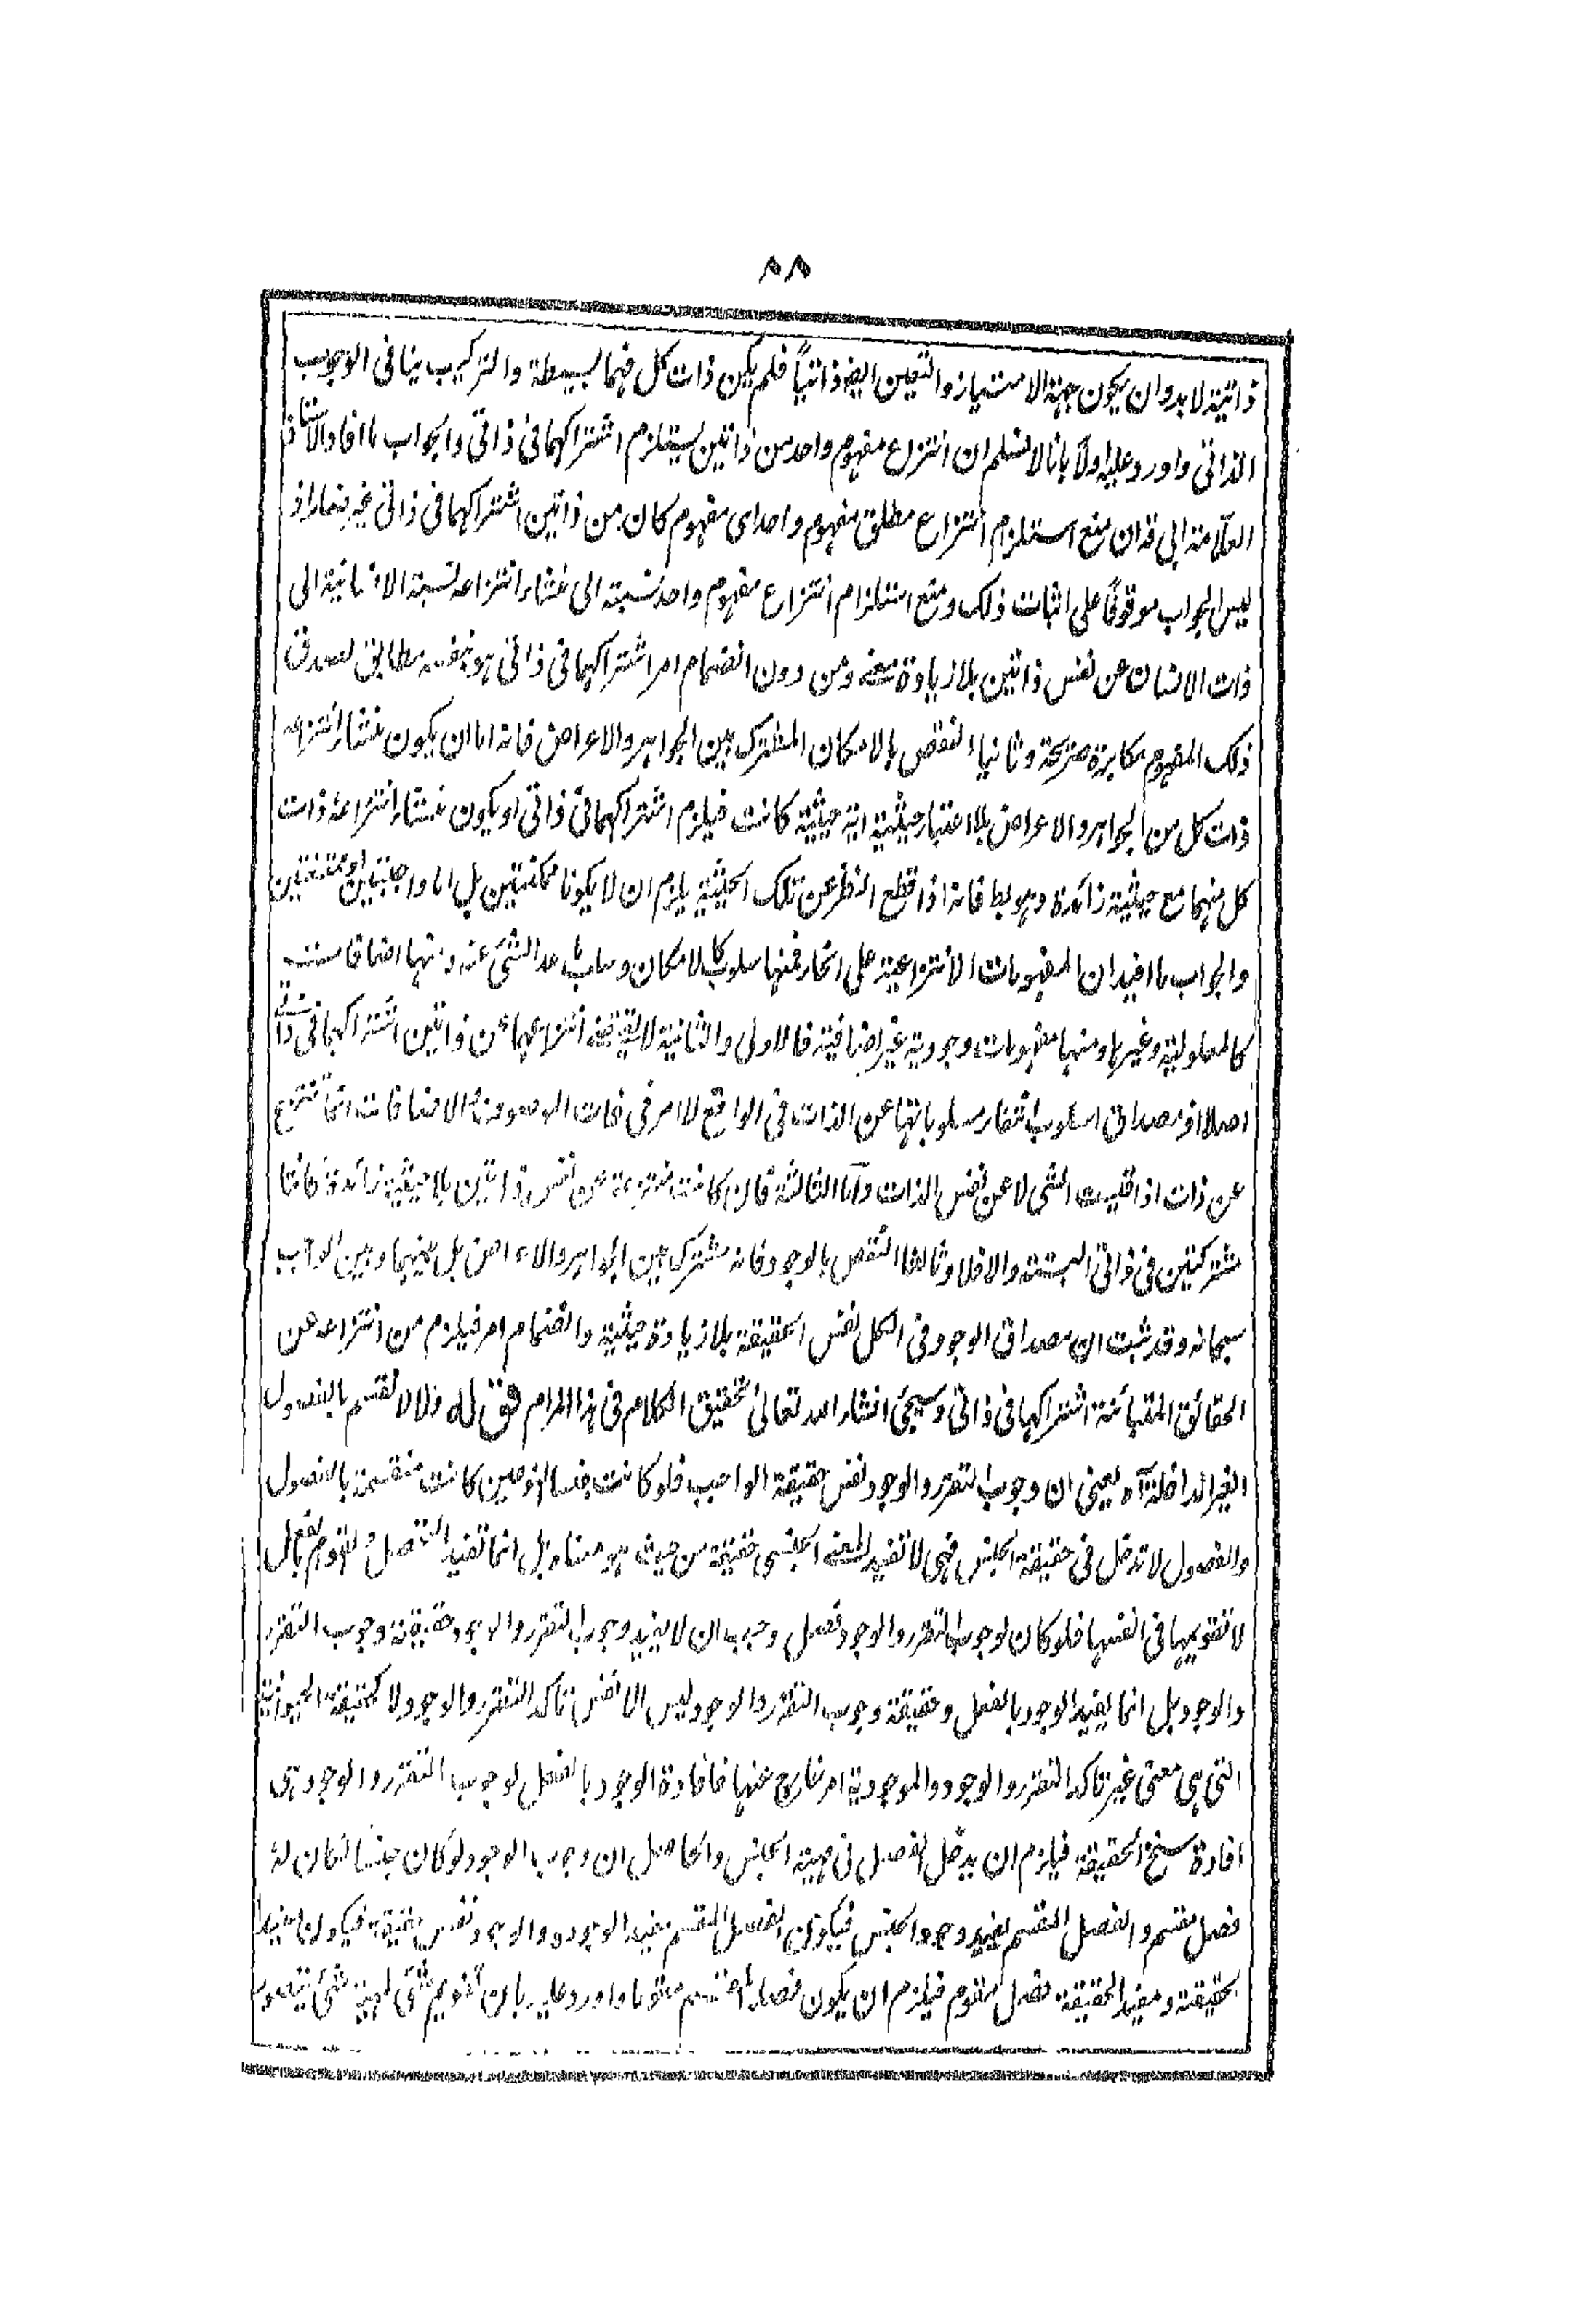 ٨٨
ذاتية لا بد وان يكون جهة الامتياز والتعين ايضا ذاتياً فلم يكن ذات كل منهما بسيطة والتركيب ينافى الوجوب
الذاتى واورد عليه اولا بانا لا نسلم ان انتزاع مفهوم واحد من ذاتين يستلزم اشتراكهما فى ذاتى والجواب ما افاد الاستاذ
العلامة ابى قدان منع استلزام انتزاع مطلق مفهوم واحد اى مفهوم كان من ذاتين اشتراكهما فى ذاتى غير ضار اذ
ليس الجواب موقوفا على اثبات ذلك ومنع استلزام انتزاع مفهوم واحد نسبته الى منشاء انتزاعه نسبة الانسانية الى
ذات الانسان عن نفس ذاتين بلا زيادة معنى ومن دون انضمام امر اشتراكهما فى ذاتى هو بنفسه مطابق لصدق
ذلك المفهوم مكابرة صريحة وثانيا النقض بالامكان المشترك بين الجواهر والاعراض فانه اما ان يكون منشأ انتزاعه
ذات كل من الجواهر والاعراض بلا اعتبار حيثية اية حيثية كانت فيلزم اشتراكهما فى ذاتى او يكون منشأ انتزاعه ذات
كل منهما مع حيثية زائدة وهو بط فانه اذا قطع النظر عن تلك الحيثية يلزم ان لا يكونا ممكنتين بل اما واجبتين او ممتنعتين
والجواب ما افيد ان المفهومات الانتزاعية على انحاء فمنها سلوب كالامكان وسلب ما عدا الشئ عنه ومنها اضافات
كالمعلولية وغيرها ومنها مفهومات وجودية غير اضافية فالاولى والثانية لا يقتضى انتزاعهما عن ذاتين اشتراكهما فى ذاتى
اصلا اذ مصداق السلوب انتفاء سلوباتها عن الذات فى الواقع لا امر فى ذات الموصوف والاضافات انما تنتزع
عن ذات اذا قيست الى شئ لا عن نفس الذات واما الثالثة فان كانت منتزعة عن نفس ذاتين بلا حيثية زائدة كانتا
مشتركتين فى ذاتى البتة والا فلا وثالثا النقض بالوجود فانه مشترك بين الجواهر والاعراض بل بينهما وبين الواجب
سبحانه وقد ثبت ان مصداق الوجود فى الكل نفس الحقيقة بلا زيادة حيثية وانضمام امر فيلزم من انتزاعه عن
الحقائق المتبائنة اشتراكها فى ذاتى وسيجئ انشاء الله تعالى تحقيق الكلام فى هذا المرام قوله ولا لانقسم بالفصول
الغير الداخلة آه يعنى ان وجوب التقرر والوجود نفس حقيقة الواجب فلو كانت جنسا لنوعين كانت منقسمة بالفصول
والفصول لا تدخل فى حقيقة الجنس فهى لا تفيد المعنى الجنسى حقيقة من حيث هو معناه بل انما تفيد التحصل والتقوم بالفعل
لا تقويمها فى انفسها فلو كان لوجوب التقرر والوجود فصل وجب ان لا يفيد وجوب التقرر والوجود حقيقة وجوب التقرر
والوجود بل انما يفيد الوجود بالفعل وحقيقة وجوب التقرر والوجود ليس الا نفس تاكد التقرر والوجود لا كحقيقة الحيوانية
التى هى معنى غير تاكد التقرر والوجود والموجودية امر خارج عنها فافادة الوجود بالفعل لوجوب التقرر والوجود هى
افادة سنخ الحقيقة فيلزم ان يدخل الفصل فى مهية الجنس والحاصل ان وجوب الوجود لو كان جنسا لكان له
فصل مقسم والفصل المقسم يفيد وجود الجنس فيكون الفصل المقسم مفيد الوجود والوجود نفس حقيقة فيكون مفيدا
لحقيقته ومفيد الحقيقة فصل مقوم فيلزم ان يكون فصل المقسم مقوما واورد عليه بان تقويم شئ لمهية شئ يتصور